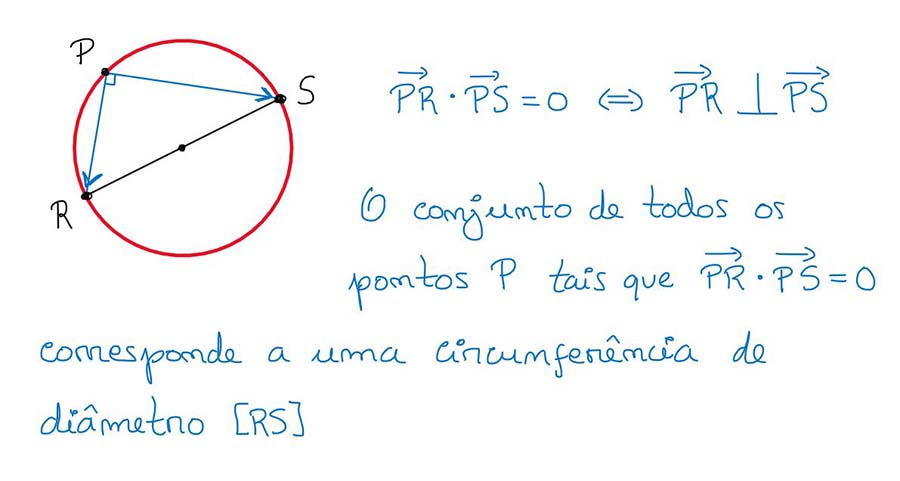 P
S
R
PR⃗ · PS⃗ = 0 ⇔ PR⃗ ⊥ PS⃗
O conjunto de todos os
pontos P tais que PR⃗ · PS⃗ = 0
corresponde a uma circunferência de
diâmetro [RS]